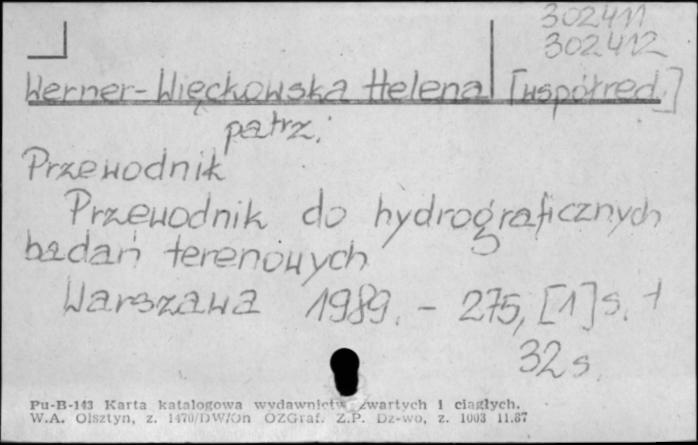 302411
302412
Werner-Więckowska Helena [współred.]
patrz.
Przewodnik
Przewodnik do hydrograficznych
badań terenowych
Warszawa 1989. - 275, [1] s. +
32 s.
Pu-B-143 Karta katalogowa wydawnictw zwartych i ciągłych.
W.A. Olsztyn, z. 1470/DW/On OZGraf. Z.P. Dz-wo, z. 1003 11.87